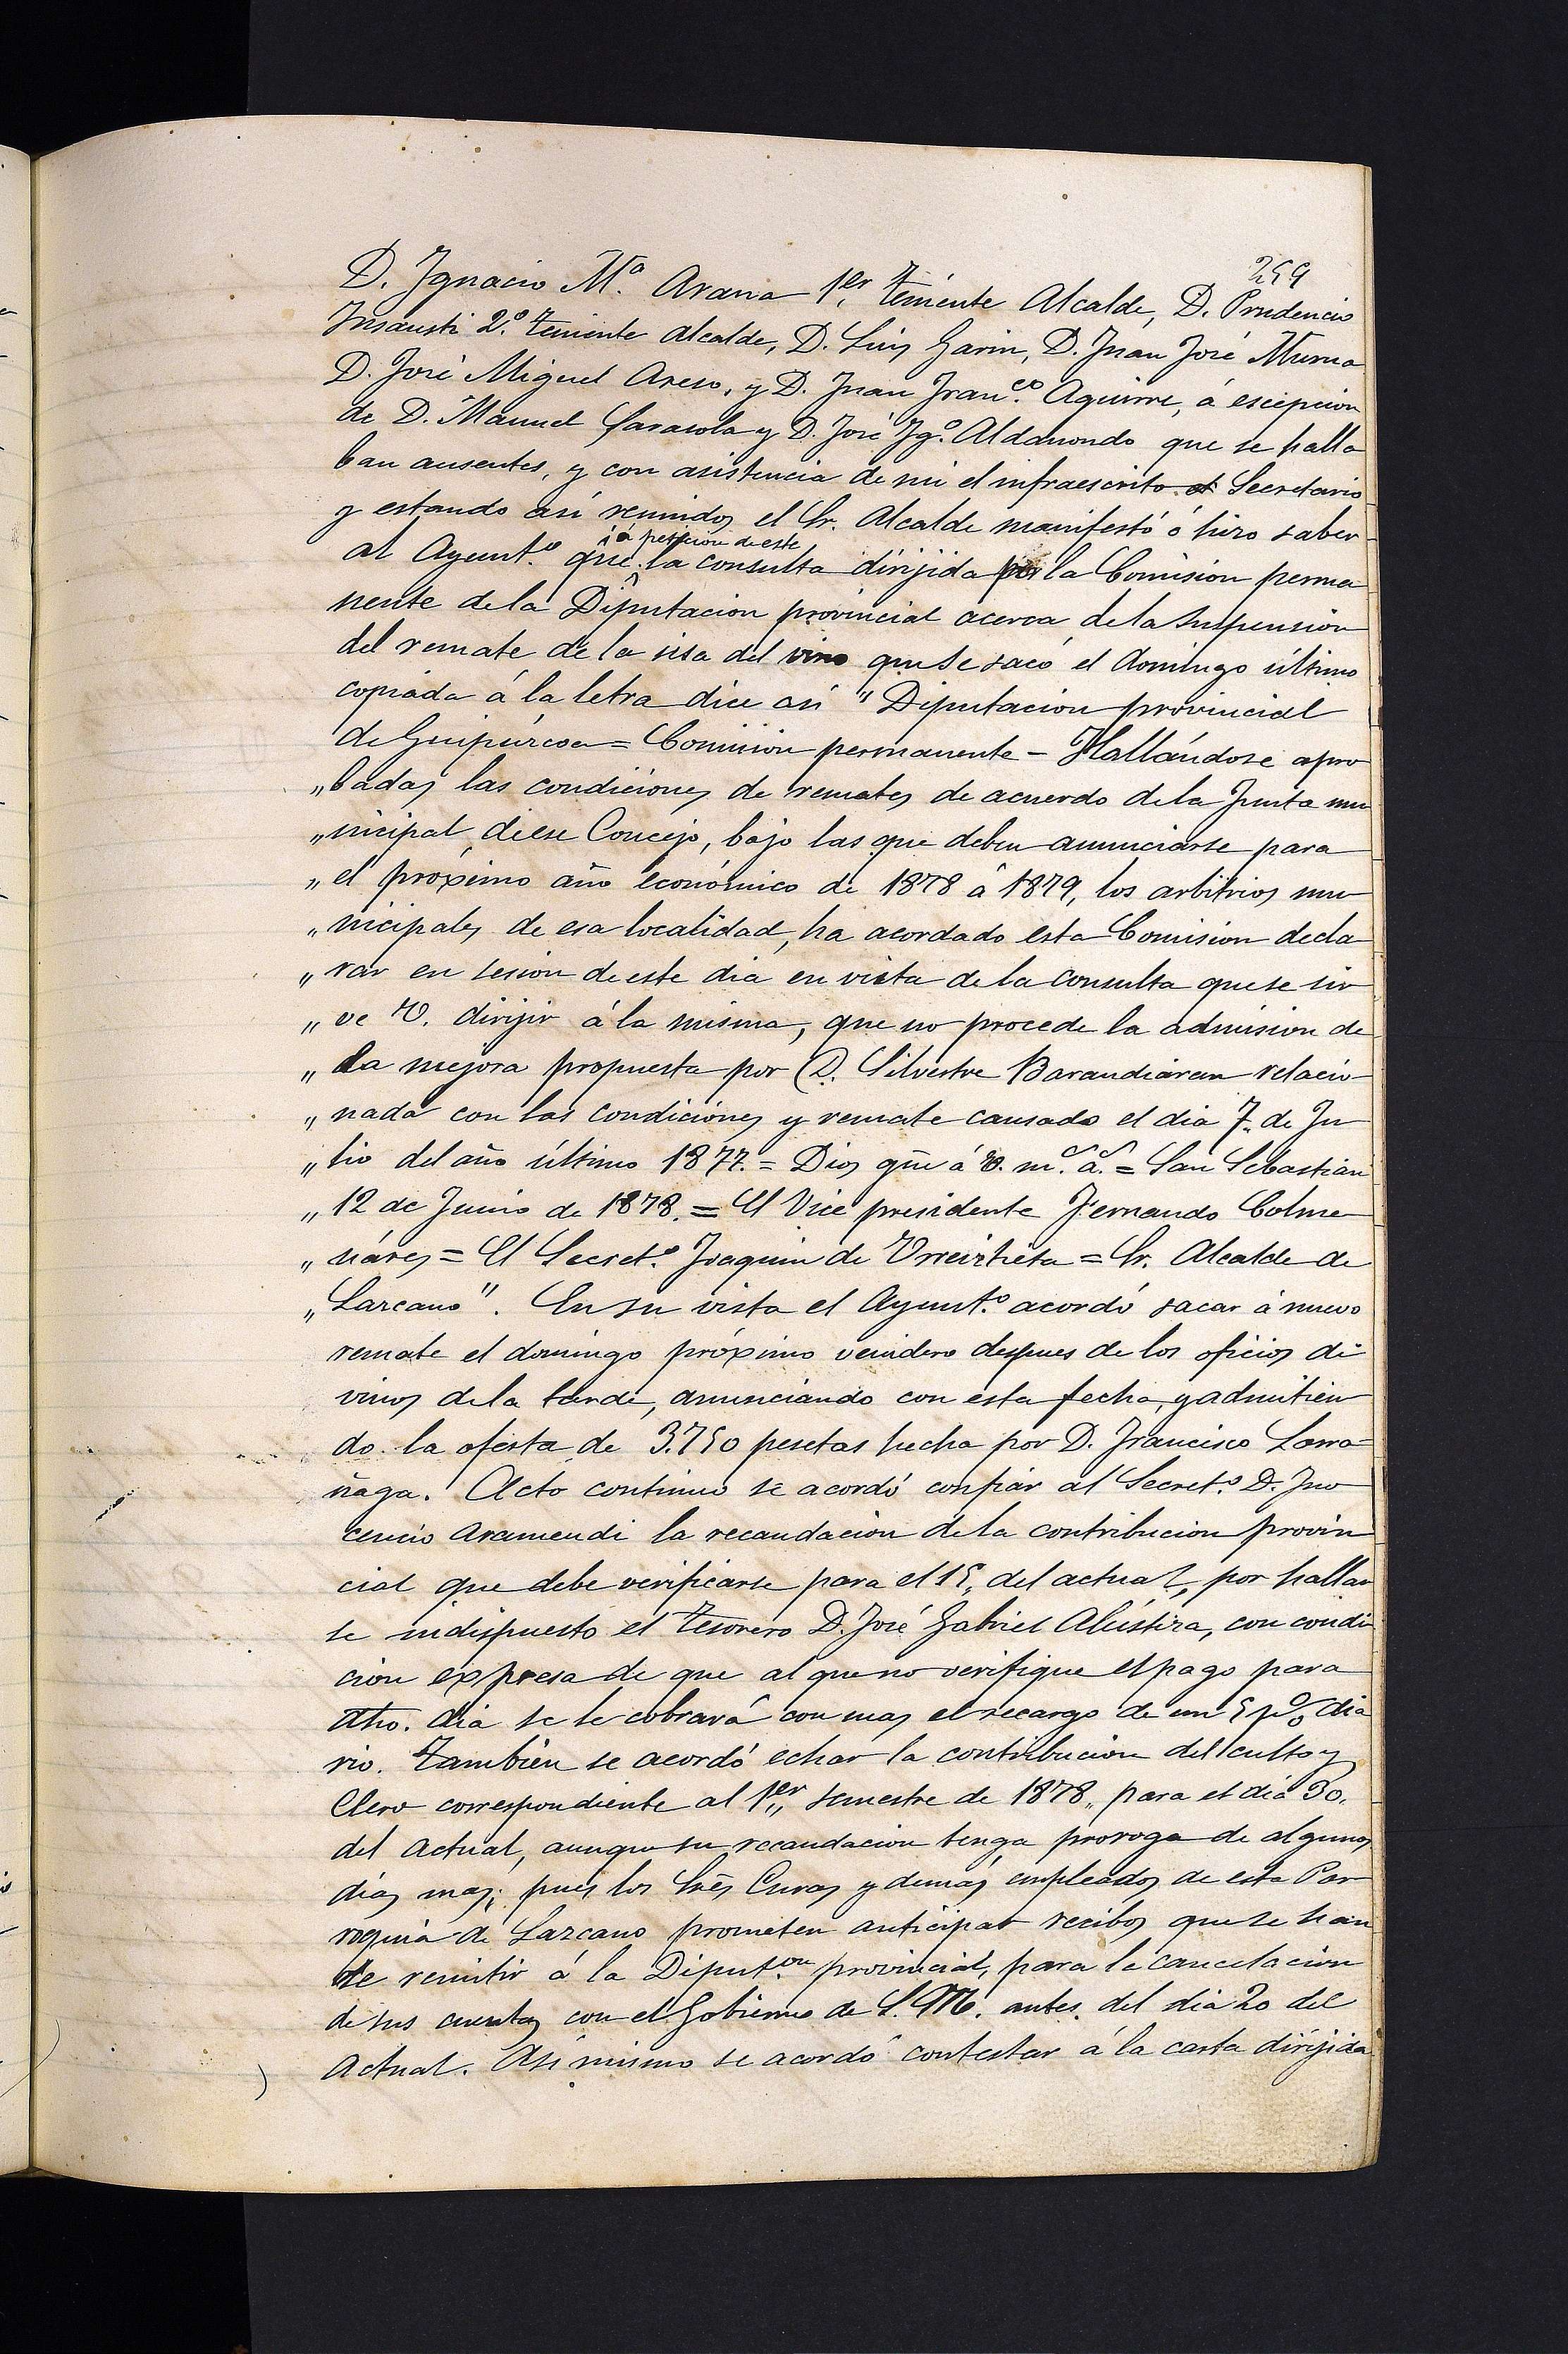 259
D. Ignacio M.ª Arana 1.er teniente Alcalde, D. Prudencio
Insausti 2.º teniente alcalde, D. Luis Garin, D. Juan José Murua
D. José Miguel Areso, y D. Juan Fran.co Aguirre, á escepcion
de D. Manuel Sarasola y D. José Ig.º Aldanondo que se halla
ban ausentes, y con asistencia de mi el infraescrito el Secretario
y estando así reunidos el Sr. Alcalde manifestó ó hizo saber
á peticion de este
al Ayunt.º que la consulta dirijida por la Comision perma
nente de la Diputacion provincial acerca de la suspension
del remate de la sisa del vino que se sacó el domingo último
copiada á la letra dice así "Diputacion provincial
de Guipúzcoa = Comision permanente - Hallándose apro
"badas las condiciones de remates de acuerdo de la Junta mu
"nicipal de ese Concejo, bajo las que deben anunciarse para
"el próximo año económico de 1878 á 1879, los arbitrios mu
"nicipales de esa localidad, ha acordado esta Comision decla
"rar en sesion de este dia en vista de la consulta que se sir
"ve V. dirijir á la misma, que no procede la admision de
"la mejora propuesta por D. Silvestre Barandiaran relacio
"nada con las condiciones y remate causado el dia 7. de Ju
"lio del año último 1877. = Dios gūe á V. m.s a.s = San Sebastian
"12 de Junio de 1878. = El Vice presidente Fernando Colme
"náres = El Secret.º Joaquin de Urreiztieta = Sr. Alcalde de
"Lazcano". En su vista el Ayunt.º acordó sacar á nuevo
remate el domingo próximo venidero despues de los oficios di
vinos de la tarde, anunciando con esta fecha, y admitien
do la oferta de 3.750 pesetas hecha por D. Francisco Larra
ñaga. Acto continuo se acordó confiar al Secret.º D. Ino
cencio Aramendi la recaudacion de la contribucion provin
cial que debe verificarse para el 15, del actual, por hallar
se indispuesto el tesorero D. José Gabriel Alústiza, con condi
cion expresa de que al que no verifique el pago para
dho. dia se le cobrará con mas el recargo de un 5 p% dia
rio. Tambien se acordó echar la contribucion del culto y
Clero correspondiente al 1.er semestre de 1878, para el dia 30,
del actual, aunque su recaudacion tenga proroga de algunos
dias mas; pues los Srēs Curas y demás empleados de esta Par
roquia de Lazcano prometen anticipar recibos que se han
de remitir á la Diput.on provincial, para la cancelacion
de sus cuentas con el Gobierno de S.M. antes del dia 20 del
actual. Así mismo se acordó contestar á la carta dirijida